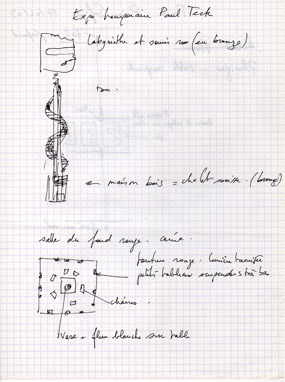 Expo temporaire Paul Teck
labyrinthe et souris (en bronze)
tour.
← maison bois = chalet suisse. (bronze)
salle du fond rouge. carrée.
tenture rouge. lumière tamisée
petits tableaux suspendus très bas
chaises.
vase + fleur blanche sur table